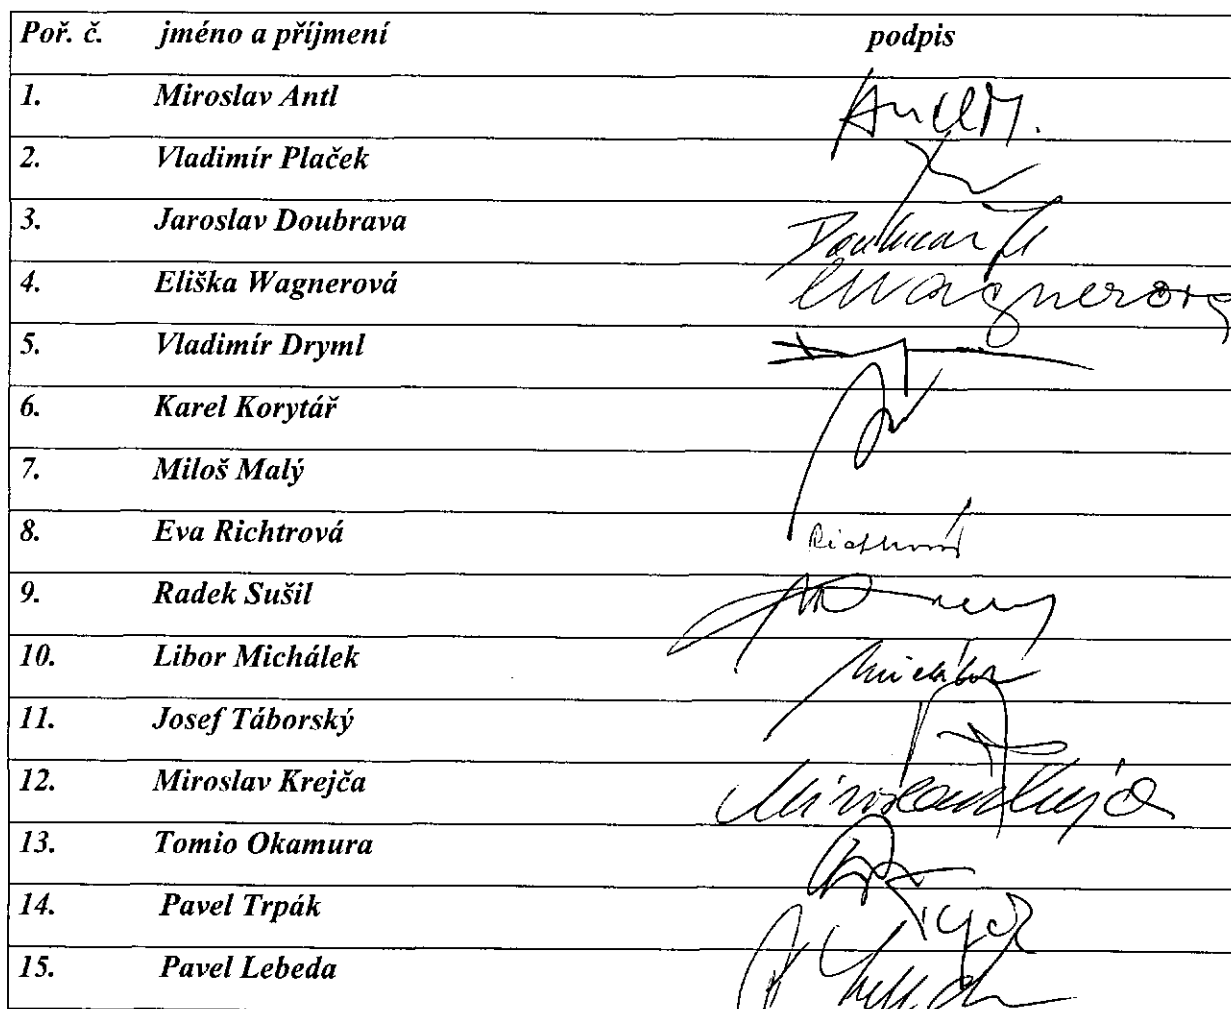 Poř. č. jméno a příjmení podpis
1. Miroslav Antl
2. Vladimír Plaček
3. Jaroslav Doubrava
4. Eliška Wagnerová EWagnerová
5. Vladimír Dryml
6. Karel Korytář
7. Miloš Malý
8. Eva Richtrová Richtrová
9. Radek Sušil
10. Libor Michálek
11. Josef Táborský
12. Miroslav Krejča Miroslav Krejča
13. Tomio Okamura
14. Pavel Trpák
15. Pavel Lebeda